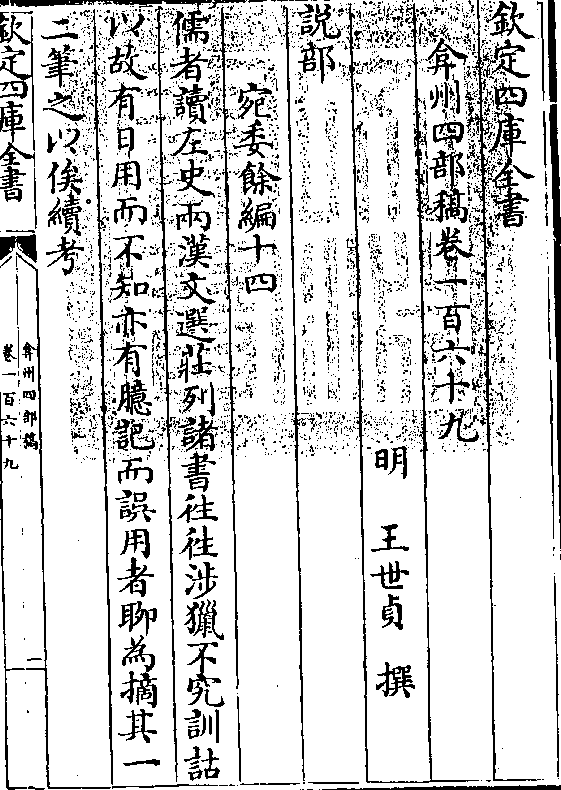 欽定四庫全書
弇州四部稿卷一百六十九
明 王世貞 撰
說部
宛委餘編十四
儒者讀左史兩漢文選莊列諸書徃徃涉獵不究訓詁
以故有日用而不知亦有臆記而誤用者聊為摘其一
二筆之以俟續考
欽定四庫全書
弇州四部稿
卷一百六十九
一